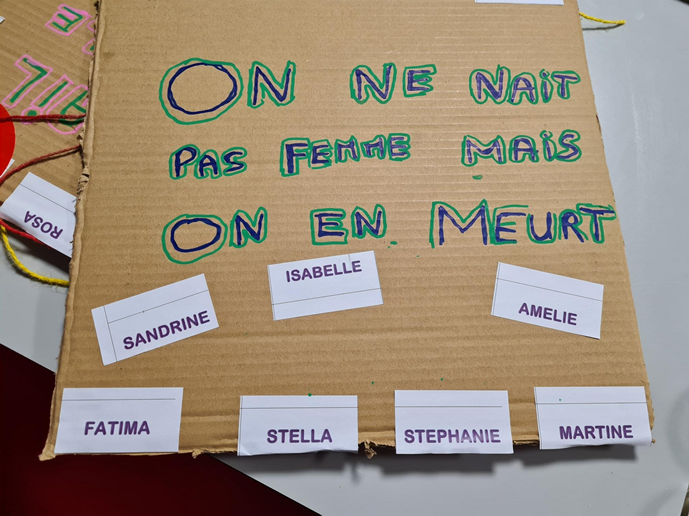 ON NE NAIT
PAS FEMME MAIS
ON EN MEURT
ROSA
ISABELLE
SANDRINE
AMELIE
FATIMA
STELLA
STEPHANIE
MARTINE